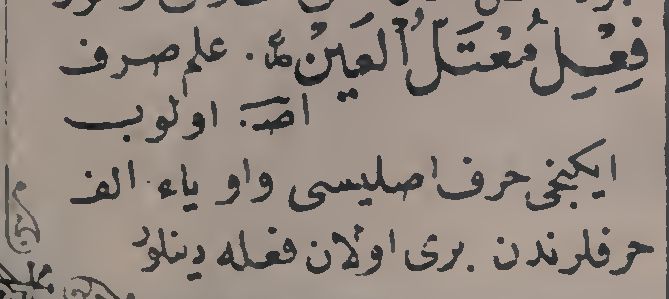 فِعْلِ مُعْتَلُّ الْعَيْنْ . علم صرف
اصـ . اولوب
ايكنجى حرف اصليسى واو ياء الف
حرفلرندن برى اولان فعله دينلور